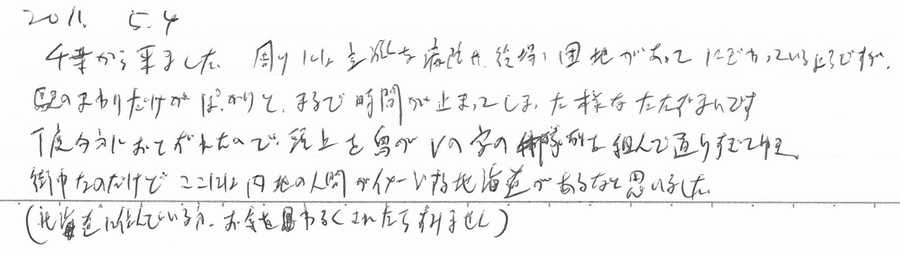 2011. 5.4
千葉から来ました。周りには立派な病院や、役場、団地があってにぎわっているようですが、
駅のまわりだけがぽっかりと、まるで時間が止まってしまった様なたたずまいです
丁度夕方におとずれたので、頭上を鳥がVの字の隊列を組んで通りすぎてゆき、
街中なのだけどここには内地の人間がイメージする北海道があるなと思いました。
(北海道に住んでいる方、お気をわるくされたらすみません)